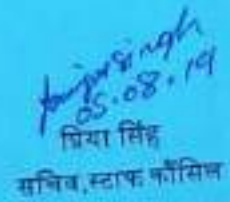 05.08.19
प्रिया सिंह
सचिव, स्टाफ कौंसिल